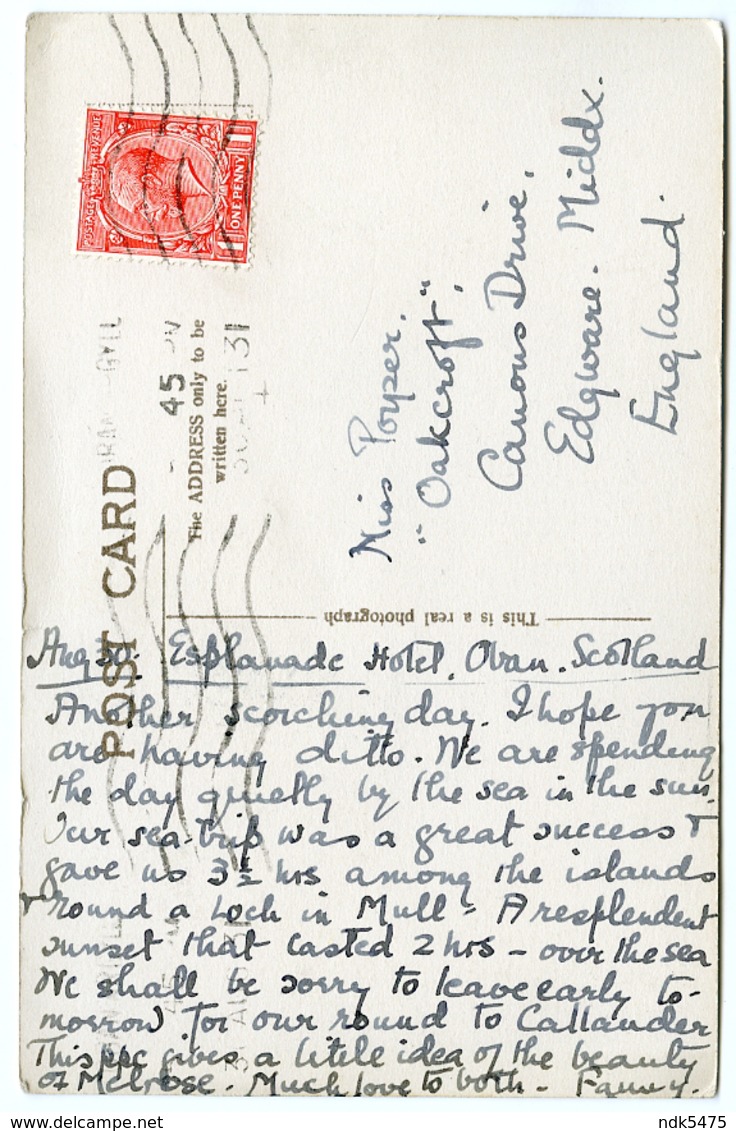 POSTAGE REVENUE
ONE PENNY
POST CARD
The ADDRESS only to be
written here.
45
This is a real photograph
Miss Poyser.
"Oakcroft",
Canons Drive,
Edgware. Middx.
England.
Aug 30. Esplanade Hotel, Oban. Scotland
Another scorching day. I hope you
are having ditto. We are spending
the day quietly by the sea in the sun.
Our sea-trip was a great success &
gave us 3 hrs among the islands
& round a Loch in Mull - A resplendent
sunset that lasted 2 hrs - over the sea
We shall be sorry to leave early to-
morrow for our round to Callander
This ppc gives a little idea of the beauty
of Melrose. Much love to both - Fanny.
ndk5475